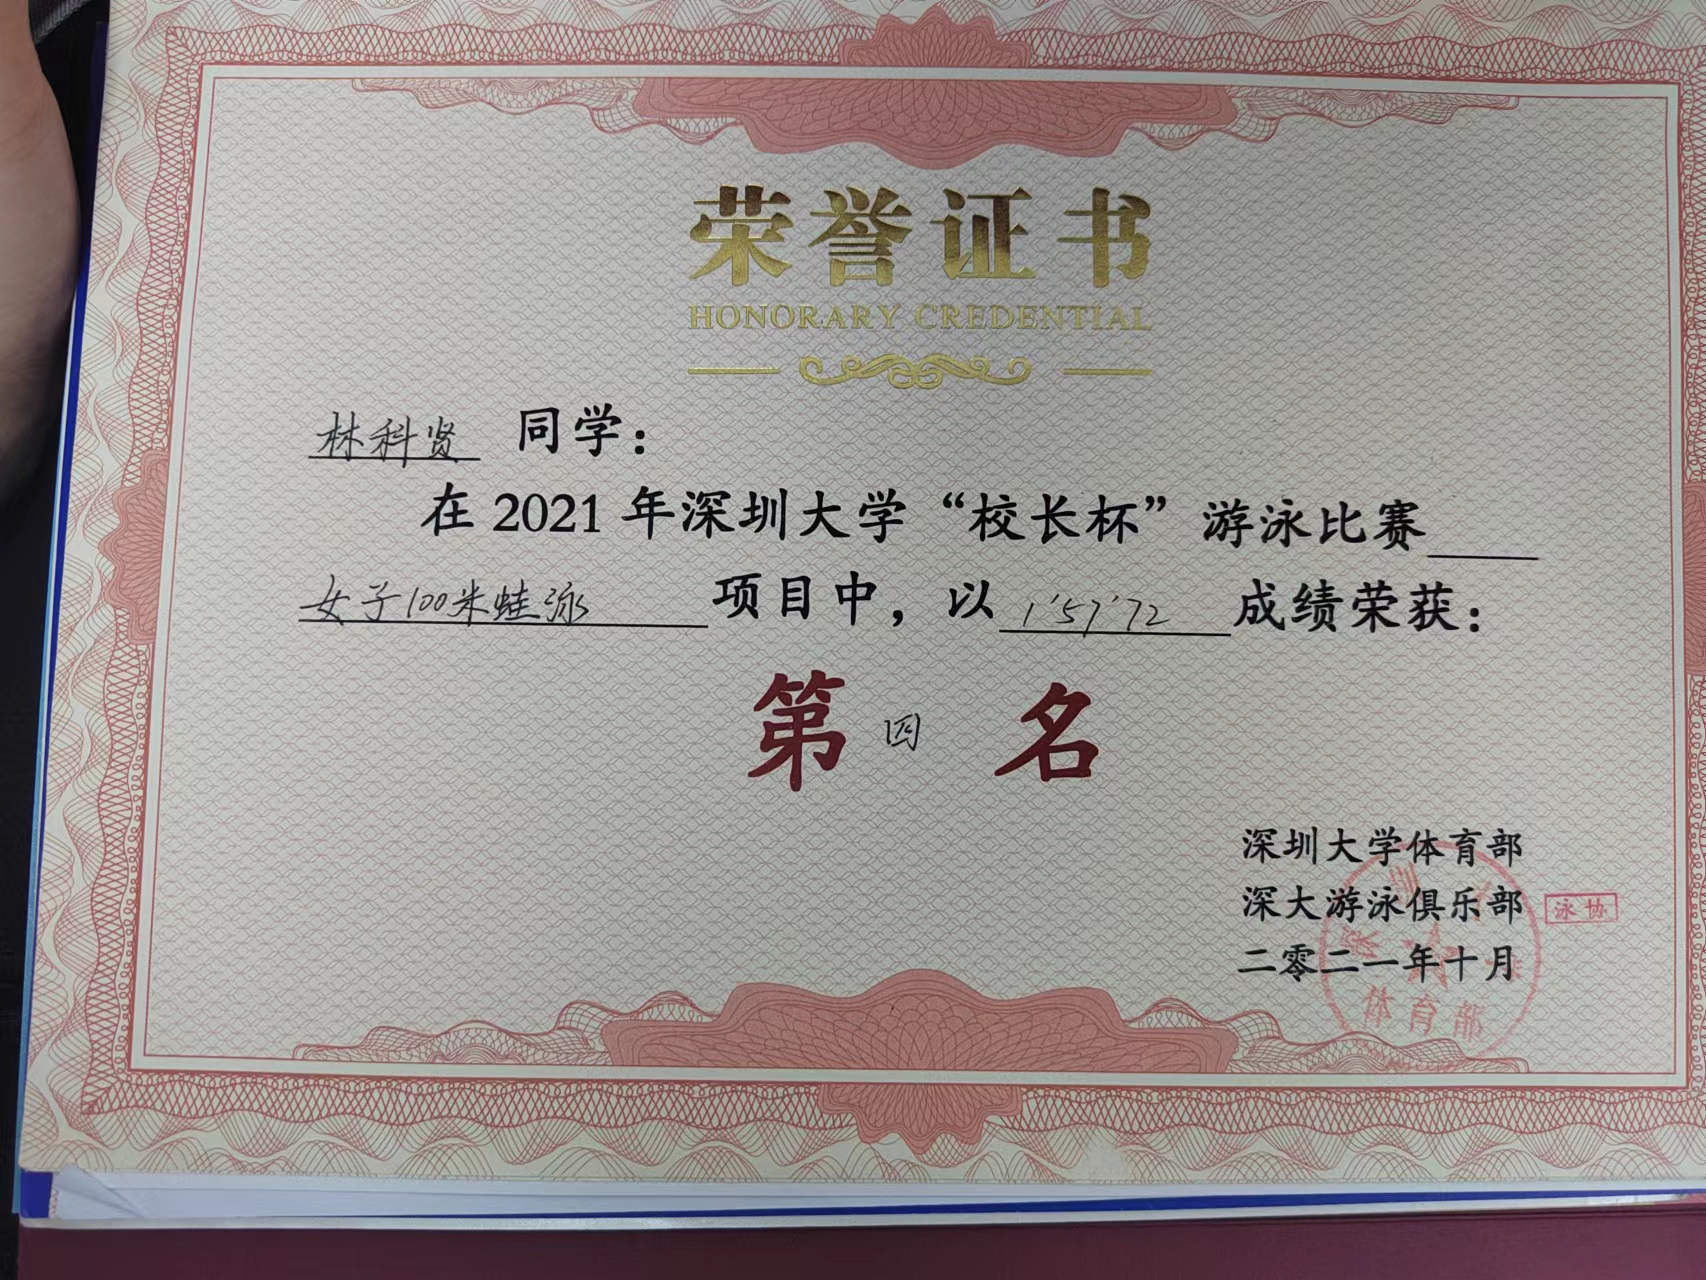 荣誉证书
HONORARY CREDENTIAL
林科贤 同学：
在 2021 年深圳大学“校长杯”游泳比赛
女子100米蛙泳 项目中，以 1'57'72 成绩荣获：
第 四 名
深圳大学体育部
深大游泳俱乐部 泳协
二零二一年十月
体育部